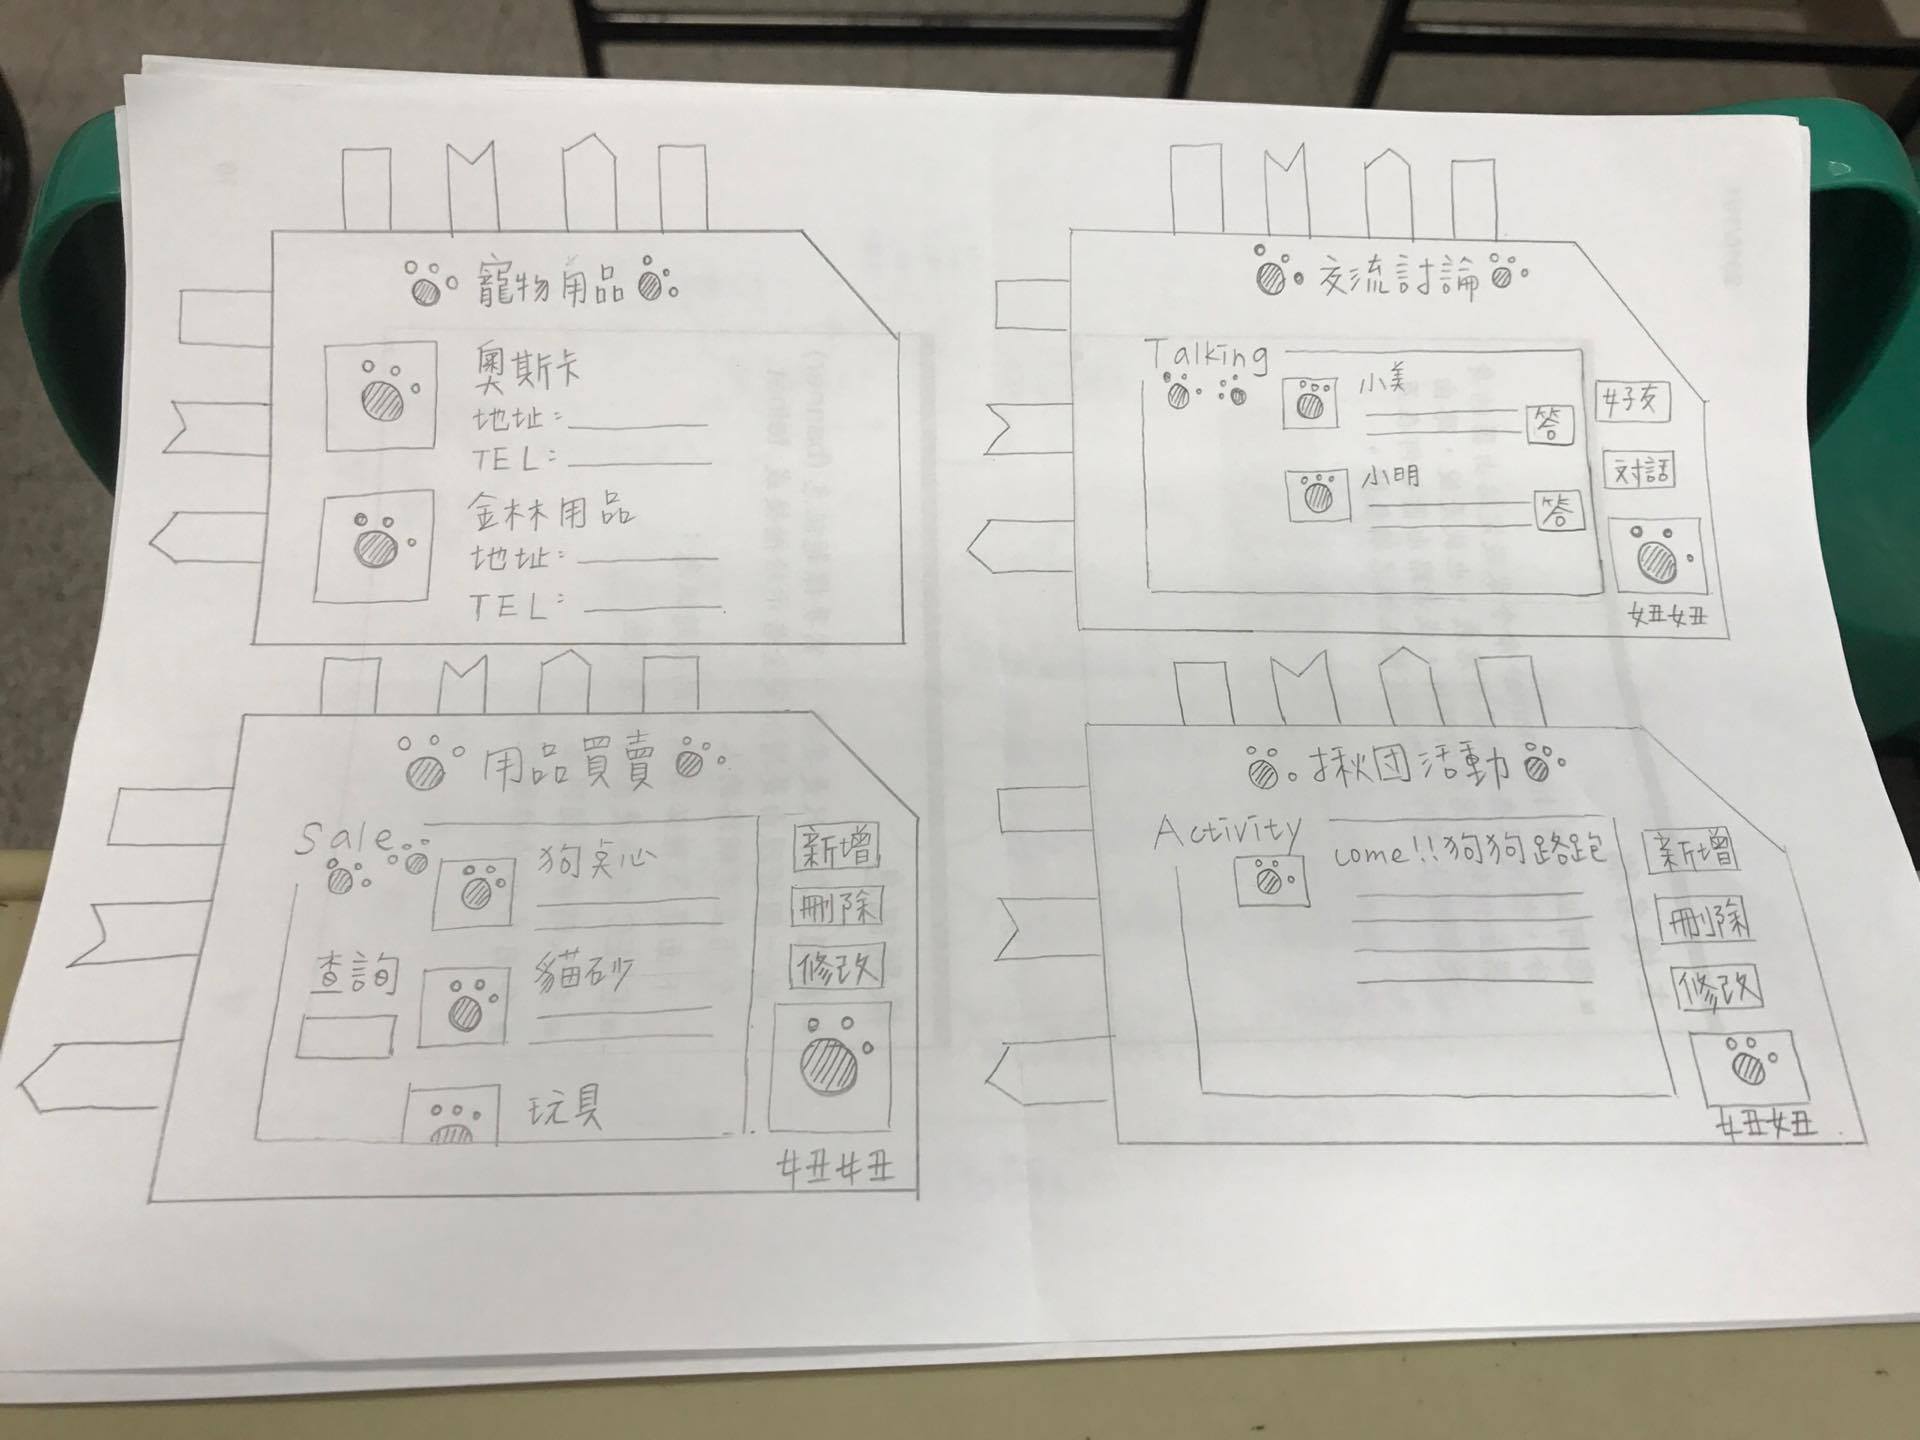 寵物用品
奧斯卡
地址:
TEL:
金林林用品
地址:
TEL:
交流討論
Talking
小美
答
小明
答
好友
对話
妞妞
用品買賣
Sale
狗桌心
查詢
貓砂
玩具
新增
刪除
修改
妞妞
揪团活動
Activity
come!!狗狗路跑
新增
刪除
修改
妞妞